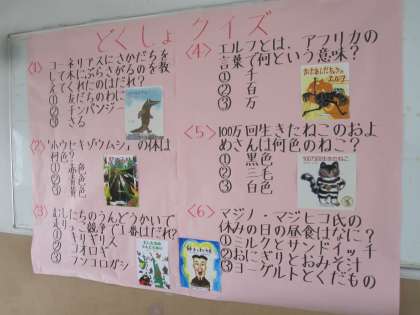 どくしょクイズ
〈1〉
コーネリアスにさかだちを
して木にぶらさがるのを教
えてくれたのはだれ?
① 友だちのわに
② チンパンジー
③ さる
〈2〉「ホウセキゾウムシ」の体は
何色?
〈3〉
むしたちのうんどうかいで
競争で1番はだれ?
① キリギリス
② コオロギ
③ フンコロガシ
〈4〉
エルフとは、アフリカの
言葉で何という意味?
① 千
② 百
③ 万
〈5〉
100万回生きたねこのおよ
めさんは何色のねこ?
① 黒色
② 三毛
③ 白色
100万回生きたねこ
〈6〉
マジノ・マジヒコ氏の
休みの日の昼食はなに?
① ミルクとサンドイッチ
② おにぎりとおみそ汁
③ ヨーグルトとくだもの